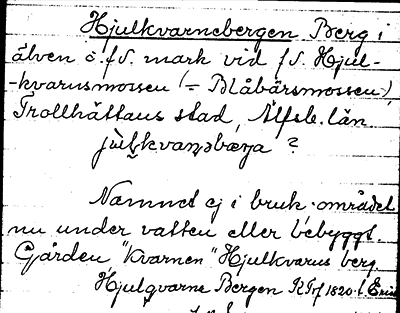 Hjulkvarnebergen Berg i
älven ö. f.d. mark vid f.d. Hjul-
-kvarnsmossen (= Blåbärsmossen),
Trollhättans stad, Älfsb. län
?
Namnet ej i bruk. området
nu under vatten eller bebyggt.
Gården "Kvarnen" Hjulkvarns berg
Hjulqvarne Bergen 1820